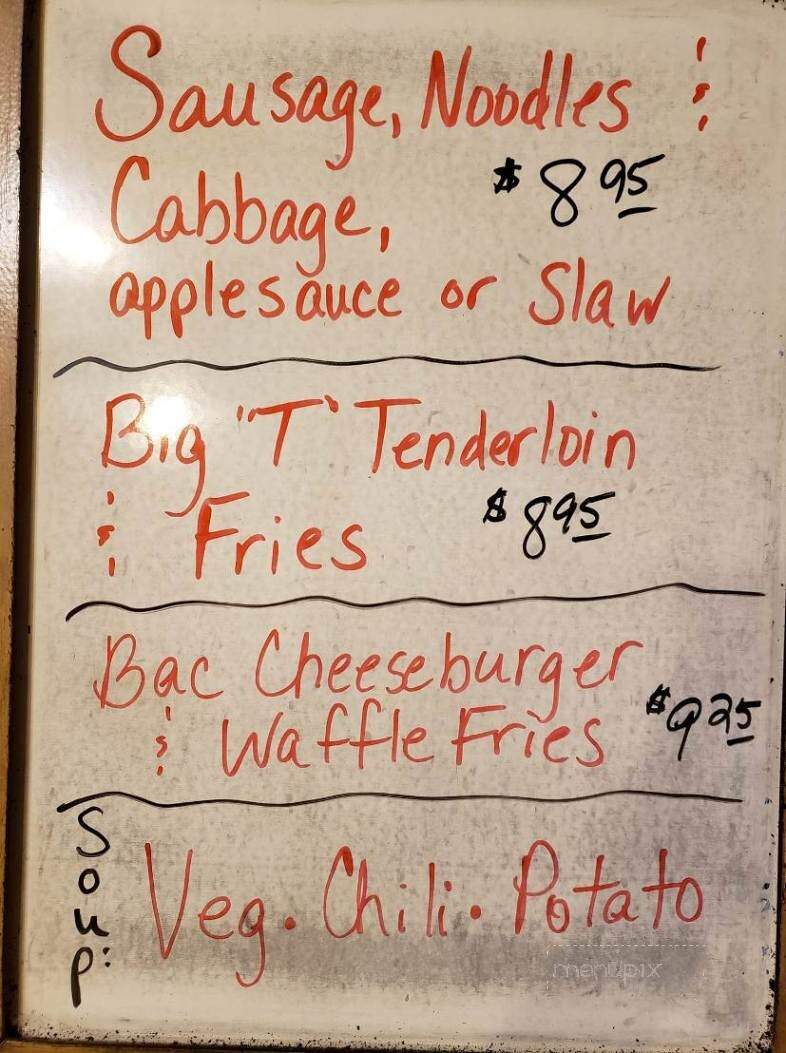 Sausage, Noodles &
Cabbage, $8.95
applesauce or Slaw
Big "T" Tenderloin
& Fries $8.95
Bac Cheeseburger
& Waffle Fries $9.25
Soup:
Veg. Chili. Potato
menupix